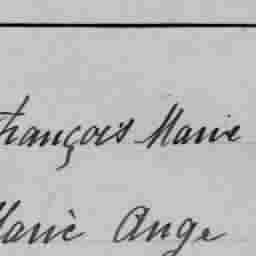 François Marie
Marie Ange